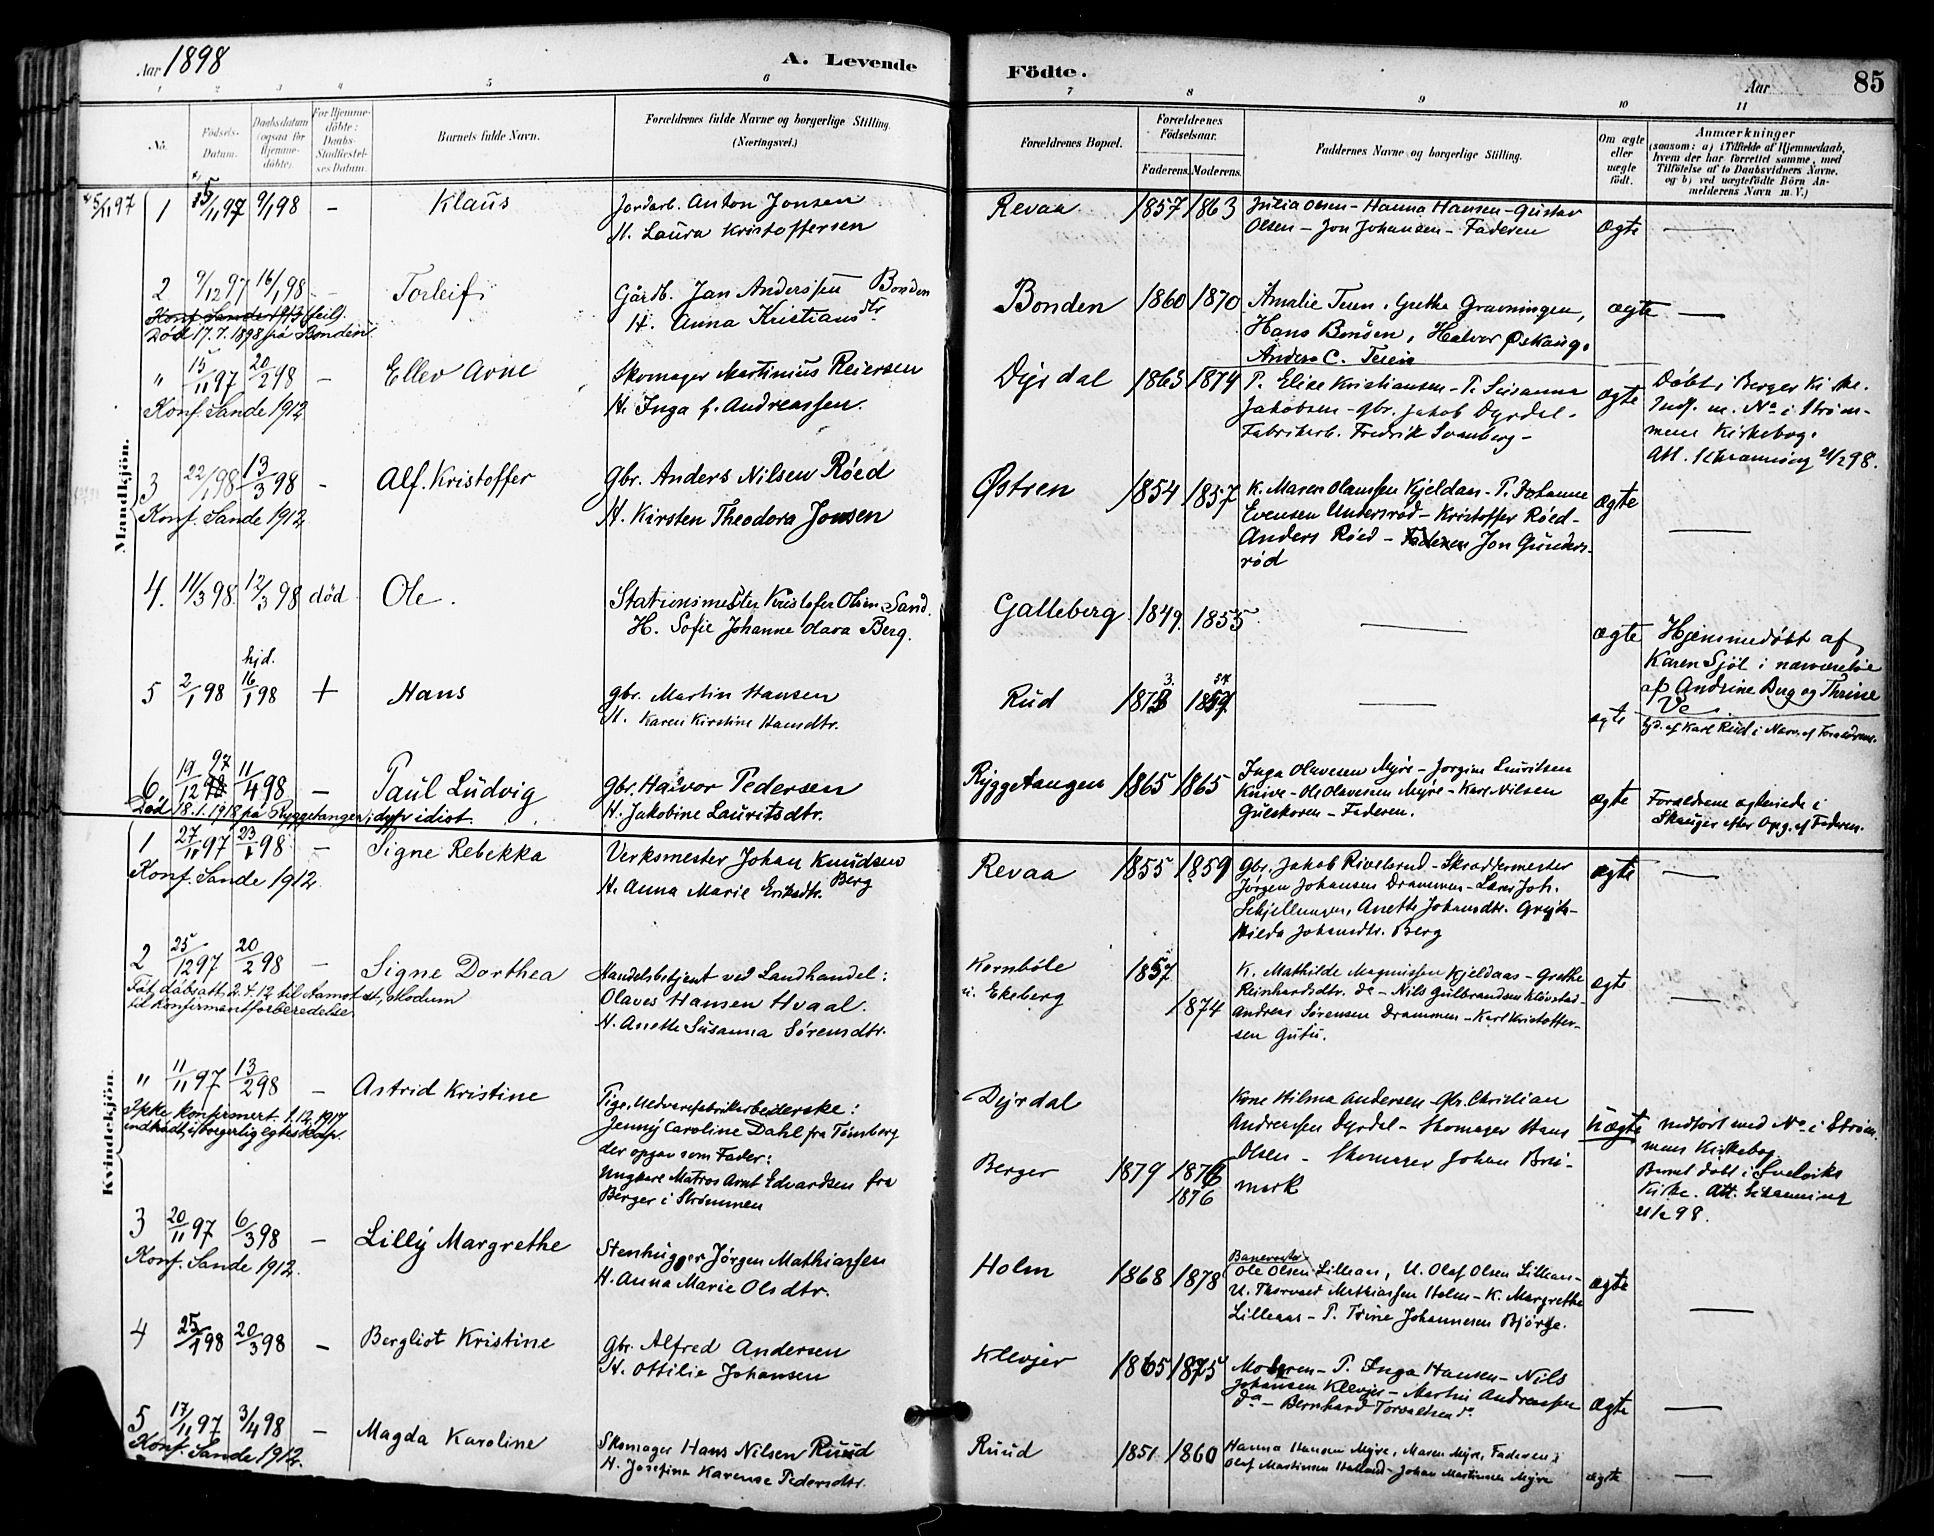 Aar 1898
A. Levende
Födte.
Aar
85
1 2 3 4 5 6 7 8 9 10 11
No.
Födsels-Datum.
Daabsdatum (ogsaa for Hjemmedöbte).
For Hjemmedöbte: Daabs-Stadfæstelses Datum.
Barnets fulde Navn.
Forældrenes fulde Navne og borgerlige Stilling. (Næringsvei.)
Forældrenes Bopæl.
Forældrenes Födselsaar.
Faderens. Moderens.
Faddernes Navne og borgerlige Stilling.
Om ægte eller uægte födt.
Anmærkninger
(saasom: a) i Tilfælde af Hjemmedaab, hvem der har forrettet samme, med Tilföielse af to Daabsvidners Navne, og b) ved uægtefödte Börn Anmelderens Navn m. V.)
Mandkjön.
5/11 97
1 5/11 97 9/1 98 – Klaus
Jordarb. Anton Jonsen
H. Laura Kristoffersen
Revaa 1857 1863
Julia Olsen – Hanna Hansen – Gustav
Olsen – Jon Johansen – Faderen
ægte —
2 9/12 97 16/1 98 – Torleif
Død 17.7.1898 på Bonden
Gårdb. Jan Anderssen Bonden
H. Anna Kristiansdtr
Bonden 1860 1870
Amalie Teien, Grethe Gravningen,
Hans Bonden, Halvor Øskaug.
Anders C. Teien
ægte —
" 15/11 97 20/2 98 – Ellev Arne
Konf. Sande 1912
Skomager Martinius Reiersen
H. Inga f. Andreassen.
Dyrdal 1863 1874
P. Elise Kristiansen – P. Susanna
Jakobsen – gbr. Jakob Dyrdal –
Fabrikarb. Fredrik Svenberg –
ægte
Døbt i Berger Kirke.
Indf. m. No i Strøm-
mens Kirkebog.
Att. Schrøning 21/2 98.
3 22/1 98 13/3 98 – Alf. Kristoffer
Konf. Sande 1912
Gbr. Anders Nilsen Røed
H. Kirsten Theodora Jonsen
Østren 1854 1857
K. Maren Olaussen Kjeldaas – P. Johanne
Evensen Undersrød – Kristoffer Røed –
Anders Røed – Faderen Jon Gunders-
rød
ægte —
4. 11/3 98. 12/3 98 død Ole.
Stationsmester Kristofer Olsen Sand.
H. Sofie Johanne Olava Berg.
Galleberg 1849. 1855
—
ægte
Hjemmedøbt af
Karen Sjøl i nærværelse
af Andrine Berg og Thrine
Ve
5 2/1 98 hjd. 16/1 98 + Hans
gbr. Martin Hansen
H. Karen Kirstine Hansdtr.
Rud
—
ægte
hjd. af Karl Rud i Nærv. af Forældrene.
6 19/12 97 11/4 98 – Paul Ludvig
Død 18.1.1918 på Ryggetangen; dypt idiot.
gbr. Halvor Pedersen
H. Jakobine Lauritsdtr.
Ryggetangen 1865 1865
Inga Olavesen Myre – Jorgine Lauritsen
Knive – Ole Olavesen Myre – Karl Nilsen
Gulskoven – Faderen.
ægte
Forældrene ægteviede i
Skauger efter Opg. af Faderen.
Kvindekjön.
1 27/11 97 23/1 98 – Signe Rebekka
Konf. Sande 1912
Verksmester Johan Knudsen
Berg
H. Anna Marie Eriksdtr.
Revaa 1855 1859
gbr. Jakob Rivelsrud – Skræddermester
Jørgen Johansen Drammen – Lars Joh.
Anette Johansdtr.
Hilda Johansdtr. Berg
ægte —
2 25/12 97 20/2 98 – Signe Dorthea
Fåt dåbsatt. 2.4.12 til Aamot st., Modum
til konfirmantforberedelse.
Handelsbetjent ved Landhandel:
Olaves Hansen Hvaal.
H. Anette Susanna Sørensdtr.
Kornbøle
u. Ekeberg
1857
1874
K. Mathilde Magnussen Kjeldaas – Grethe
Reinhardsdtr. do – Nils Gulbrandsen Kløvstad –
Andreas Sørensen Drammen – Karl Kristoffer-
sen Gutu.
ægte —
" 11/11 97 13/2 98 – Astrid Kristine
Ikke konfirmert. 1.12.1917
indtrådt i borgerlig egteskap.
Pige, Uldvarefabrikarbeiderske:
Jenny Caroline Dahl fra Tønsberg
der opgav som Fader:
Ungkarl Matros Arnt Edvardsen fra
Berger i Strømmen
Dyrdal
Berger 1879 1876
1876
Kone Hilma Andersen – Gbr. Christian
Andreassen Dyrdal – Skomager Hans
Olsen – Skomager Johan Bru-
merk
uægte
Indført med No i Strøm-
mens Kirkebog
Barnet døbt i Svelviks
Kirke. Att. Schrøning
21/2 98.
3 20/11 97 6/3 98 – Lilly Margrethe
Konf. Sande 1912.
Stenhugger Jørgen Mathiassen
H. Anna Marie Olsdtr.
Holm 1868 1878
Banevogter
Ole Olsen Lilleaas, U. Olaf Olsen Lilleaas –
U. Thorvald Mathiassen Holm – K. Margrethe
Lilleaas – P. Trine Johannesen Bjørge.
ægte —
4 25/1 98 20/3 98 – Bergliot Kristine
Gbr. Alfred Andersen
H. Ottilie Johansen
Klevjer 1865 1875
Moderen – P. Inga Hansen – Nils
Johansen Klevjer – Martin Andreassen
do – Bernhard Torvaldsen do
ægte —
5 17/11 97 3/4 98 – Magda Karoline
Konf. Sande 1912.
Skomager Hans Nilsen Ruud
H. Josefine Karense Pedersdtr.
Ruud 1851 1860
Hanna Hansen Myre, Maren Myre, Faderen;
Olaf Martinsen Holland – Johan Martinsen Myre
ægte —